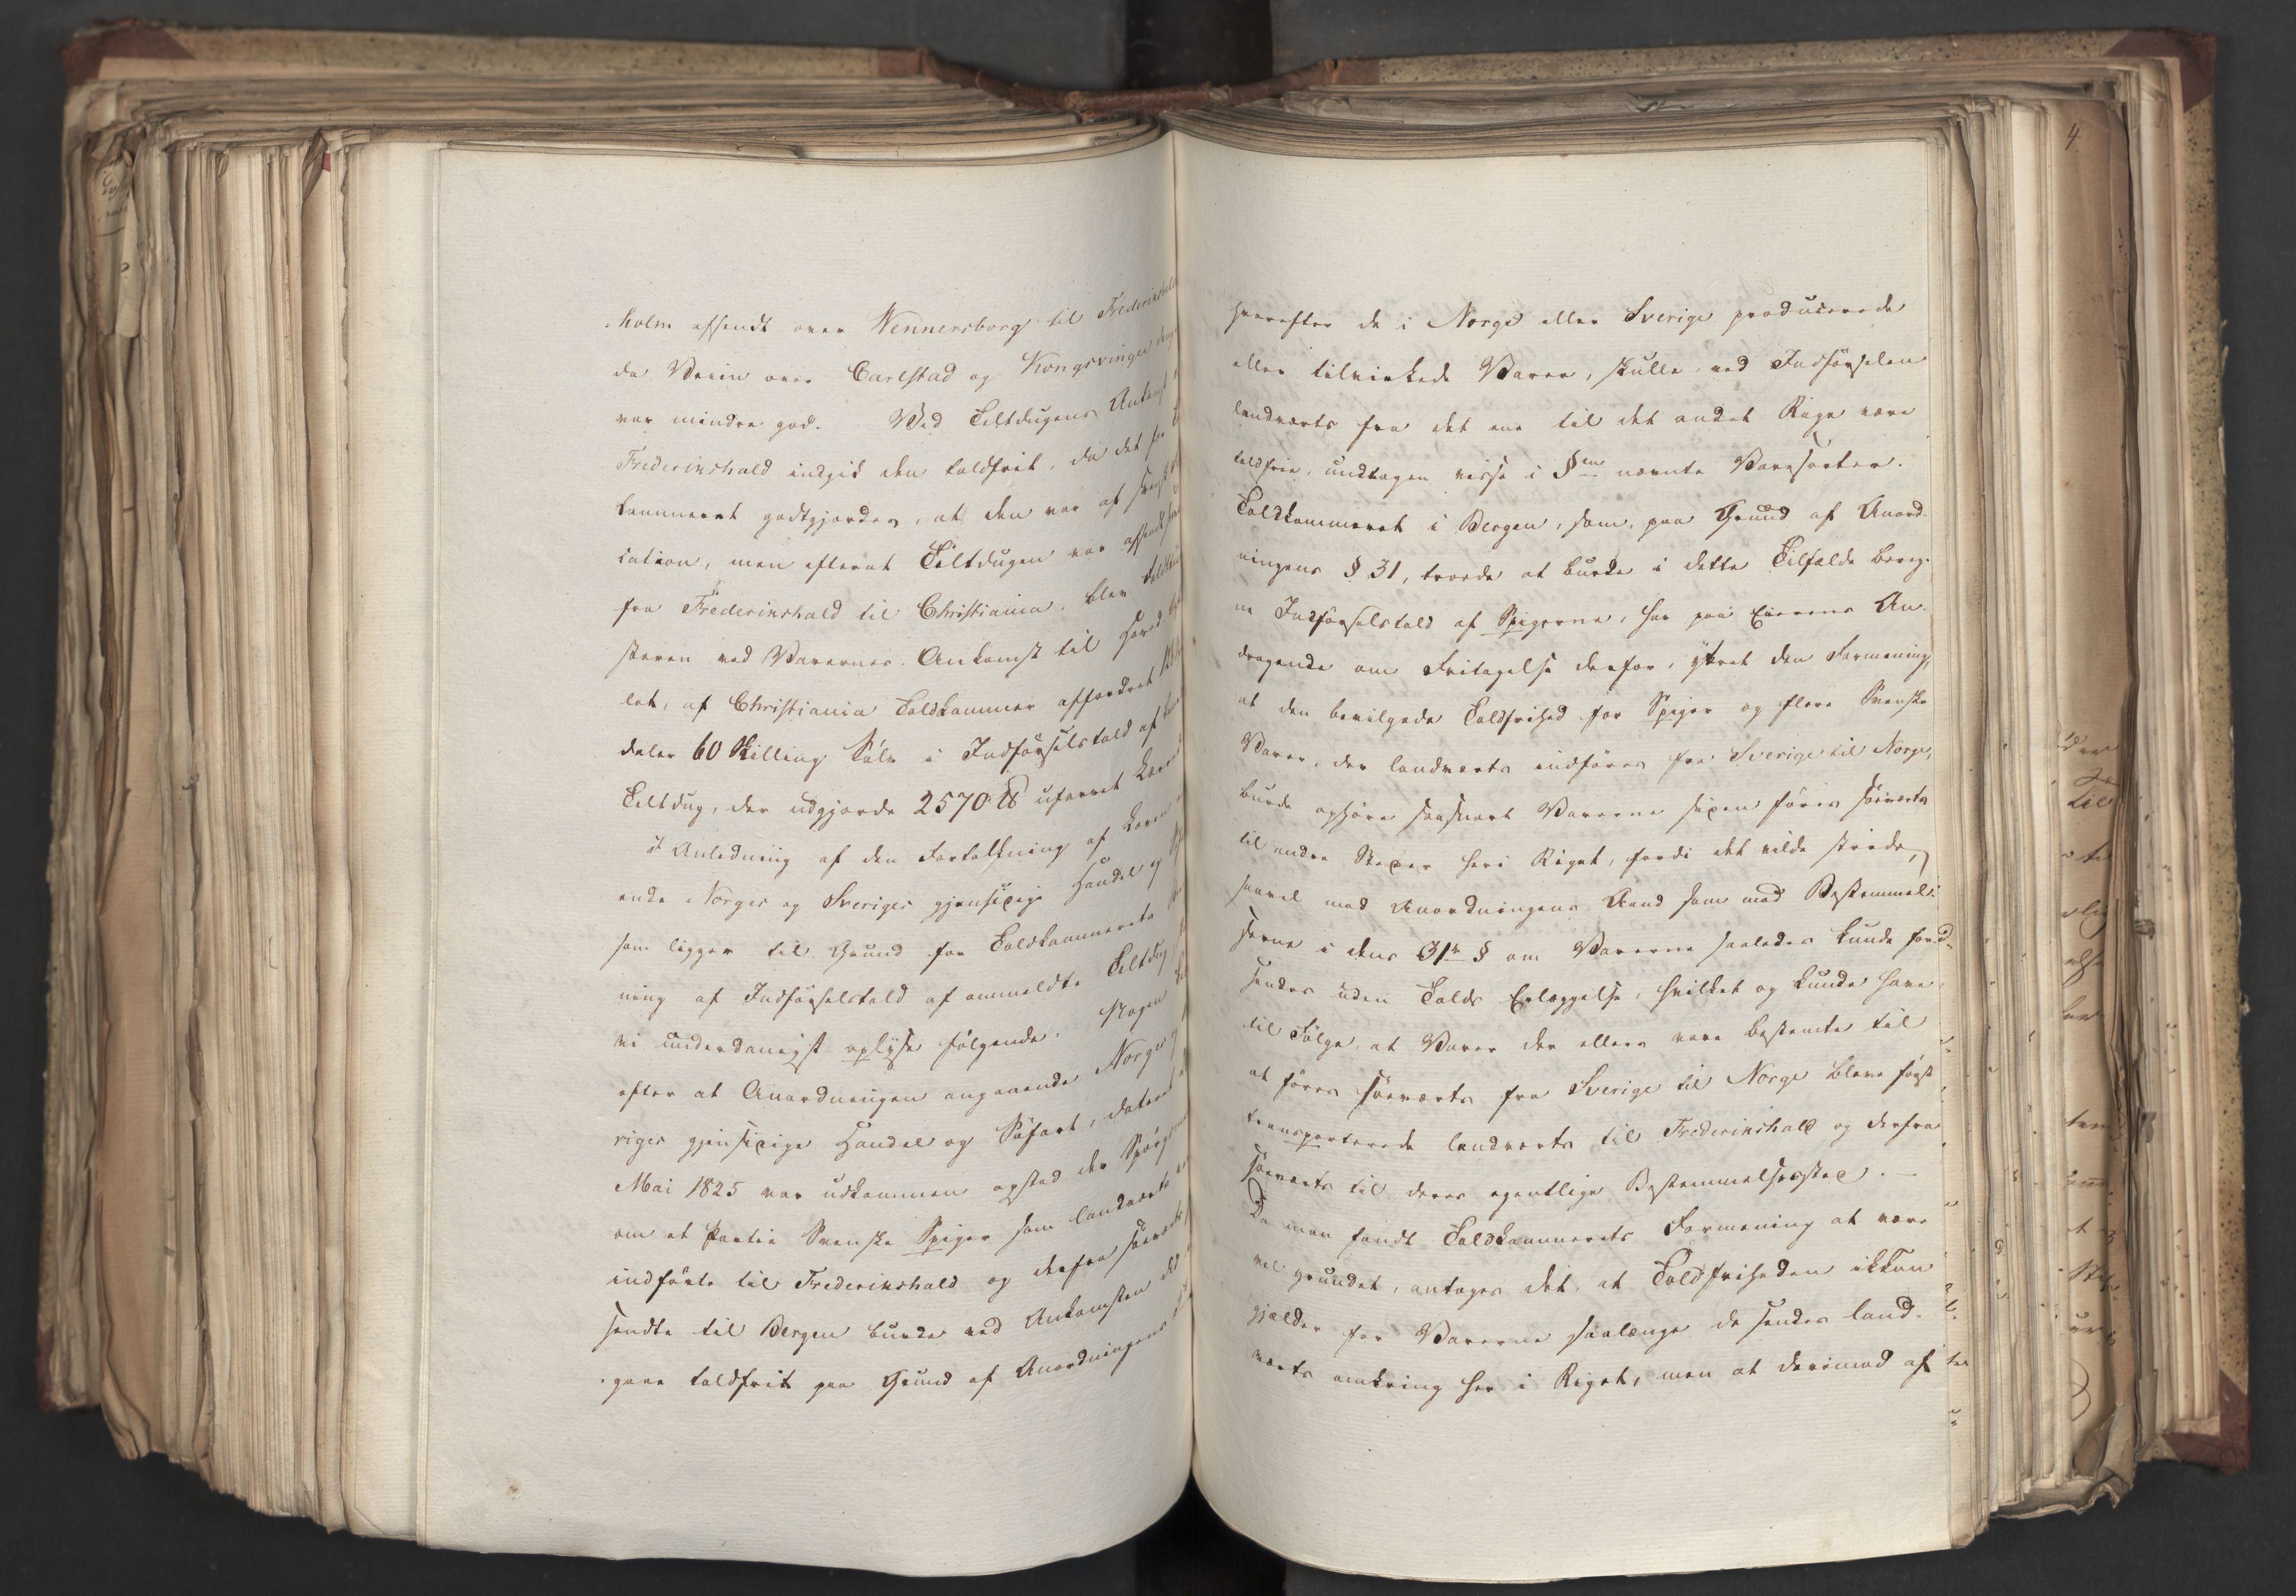 holm afsendt over Wennersborg til Frederikshald
da Veien over Carlstad og Kongsvinger
var mindre god. Ved Teltdugens Ankomst
Frederikshald indgik den toldfrit, da det for
kammeret godtgjordes, at den var af svensk
cation, men efterat Teltdugen var afsendt
fra Frederikshald til Christiania, blev
steren ved Varernes Ankomst til Hoved
let, af Christiania Toldkammer affordret
daler 60 Skilling Sølv i Indførselstold af
Teltdug, der udgjorde 2570 ℔ ufarvet
I Anledning af den Fortolkning af Loven
ende Norges og Sveriges gjensidige Handel og
som ligger til Grund for Toldkammerets
ning af Indførselstold af ommeldte Teltdug
vi underdanigst oplyse følgende. Nogen
efter at Anordningen angaaende Norges
riges gjensidige Handel og Søfart, dateret
Mai 1825 var udkommen opstod der Spørgs
om et Partie Svenske Spiger som landværts
indførte til Frederikshald og derfra søeværts
sendte til Bergen burde ved Ankomsten
gaae toldfrit paa Grund af Anordningens
hvorefter de i Norge eller Sverige producerede
eller tilvirkede Varer, skulle ved Indførselen
landværts fra det ene til det andet Rige være
toldfrie, undtagen visse i §en nævnte Varesorter.
Toldkammeret i Bergen, som, paa Grund af Anord-
ningens § 31, troede at burde i dette Tilfælde bereg-
ne Indførselstold af Spigerne, har paa Eierens An-
dragende om Fritagelse derfor, yttret den Formening,
at den bevilgede Toldfrihed for Spiger og flere Svenske
Varer, der landværts indføres fra Sverige til Norge,
burde ophøre saasnart Varerne siden føres søeværts
til andre Steder her i Riget, fordi det vilde stride,
saavel mod Anordningens Aand som mod Bestemmel-
serne i dens 31te § om Varerne saaledes kunde forud-
sendes uden Tolds Erlæggelse, hvilket og kunde have
til Følge, at Varer der ellers vare bestemte til
at føres søeværts fra Sverige til Norge bleve først
transporterede landværts til Frederikshald og derfra
søeværts til deres egentlige Bestemmelsessted. —
Da man fandt Toldkammerets Formening at være
vel grundet, antoges det, at Toldfriheden ikkun
gjælder for Varerne saalænge de sendes land-
værts omkring her i Riget, men at derimod af